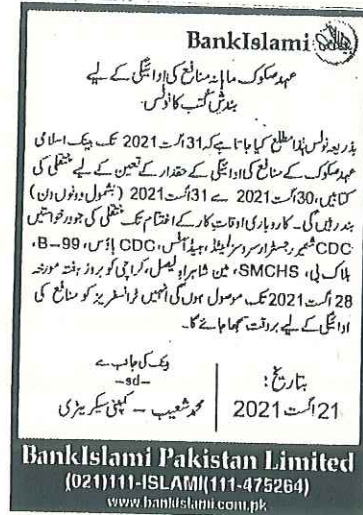 BankIslami
عہد صکوک ماہانہ منافع کی ادائیگی کے لیے
بندش کُتب کا نوٹس
بذریعہ نوٹس ہٰذا مطلع کیا جاتا ہے کہ 31 اگست 2021 تک بینک اسلامی
عہد صکوک کے منافع کی ادائیگی کے حقدار کے تعین کے لیے منتقلی کی
کتابیں، 30 اگست 2021 سے 31 اگست 2021 (بشمول دونوں دن)
بند رہیں گی۔ کاروباری اوقات کار کے اختتام تک منتقلی کی جو درخواستیں
CDC شیئر رجسٹرار سروسز لمیٹڈ، ہیڈ آفس، CDC ہاؤس، 99-B،
بلاک بی، SMCHS، مین شاہراہ فیصل، کراچی کو بروز ہفتہ مورخہ
28 اگست 2021 تک موصول ہوں گی انہیں ٹرانسفریز کو منافع کی
ادائیگی کے لیے بروقت سمجھا جائے گا۔
بینک کی جانب سے
-sd-
محمد شعیب - کمپنی سیکریٹری
بتاریخ:
21 اگست 2021
BankIslami Pakistan Limited
(021)111-ISLAMI(111-475264)
www.bankislami.com.pk